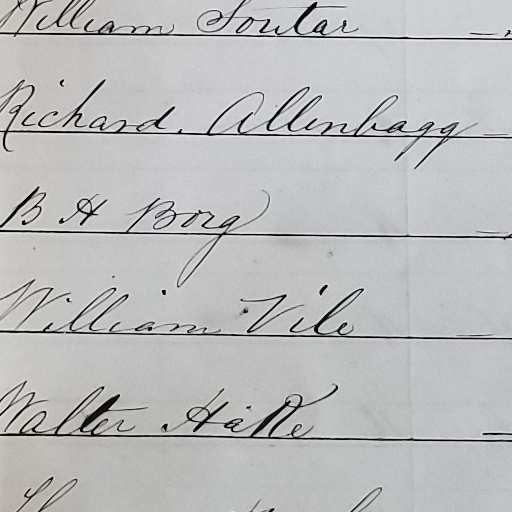 William Soutar
Richard. Allenbagg
B H Borg
William Vile
Walter